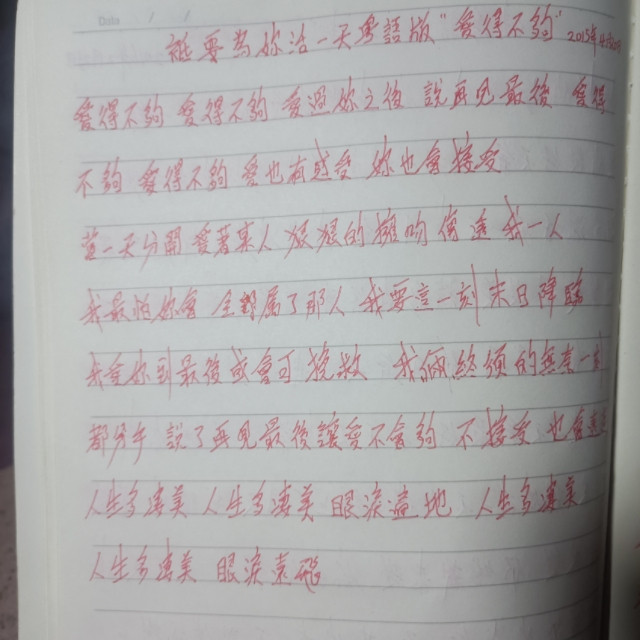 Date / /
誰要為妳活一天粵語版"愛得不夠" 2015年
愛得不夠 愛得不夠 愛過妳之後 說再見最後 愛得
不夠 愛得不夠 愛也有感受 妳也會接受
一天分開 愛著某人 狠狠的擁吻 我一人
我最怕妳會 全部屬了那人 我要這一刻 末日降臨
我愛妳到最後或會可挽救 我倆終須的無意一刻
都分手 說了再見最後讓愛不會夠 不接受 也會
人生多凄美 人生多凄美 眼淚蓋地 人生多凄美
人生多凄美 眼淚